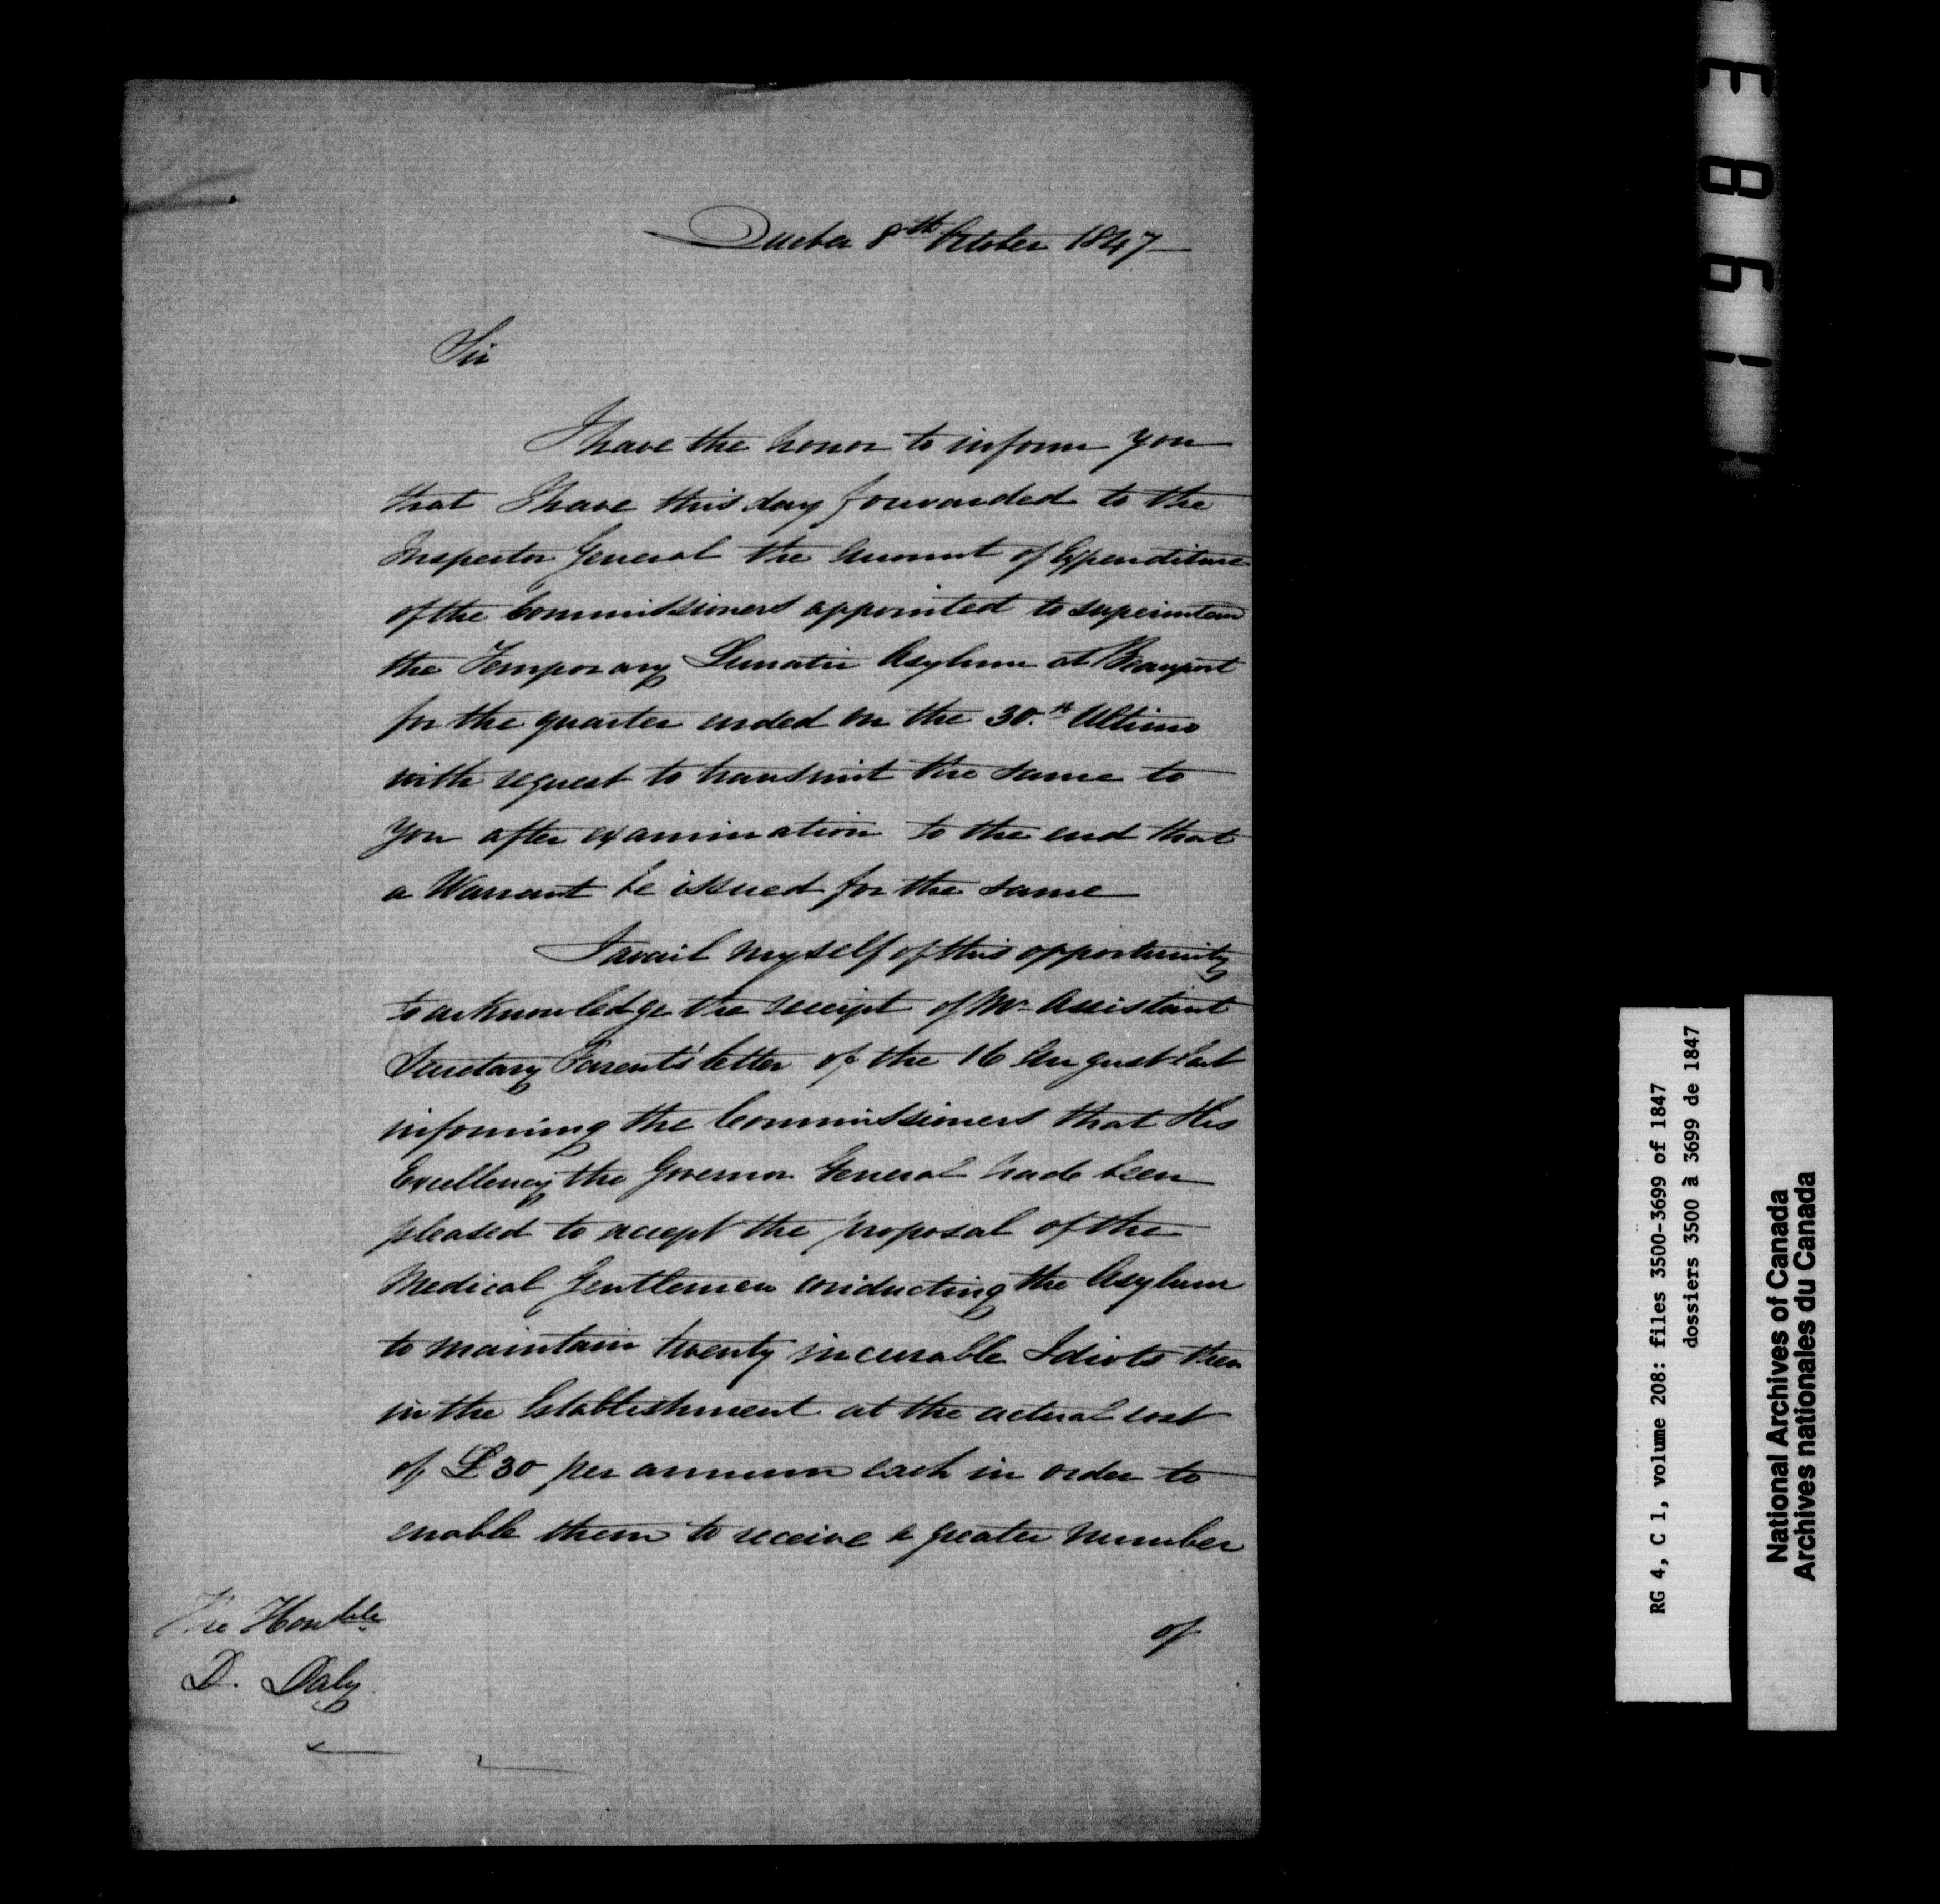 Quebec 8th October 1847
Sir
I have the honor to inform you
that I have this day forwarded to the
Inspector General the Account of Expenditure
of the Commissioners appointed to superintend
the Temporary Lunatic Asylum at Beauport
for the quarter ended on the 30.th Ultimo
with request to transmit the same to
you after examination to the end that
a Warrant be issued for the same
I avail myself of this opportunity
to acknowledge the receipt of Mr. Assistant
Secretary Parent's letter of the 16 August last
informing the Commissioners that His
Excellency the Governor General had been
pleased to accept the proposal of the
Medical Gentlemen conducting the Asylum
to maintain twenty incurable Idiots then
in the Establishment at the actual cost
of £30 per annum each in order to
enable them to receive a greater number
of
The Honble.
D. Daly
E861
RG 4, C 1, volume 208: files 3500-3699 of 1847
dossiers 3500 à 3699 de 1847
National Archives of Canada
Archives nationales du Canada